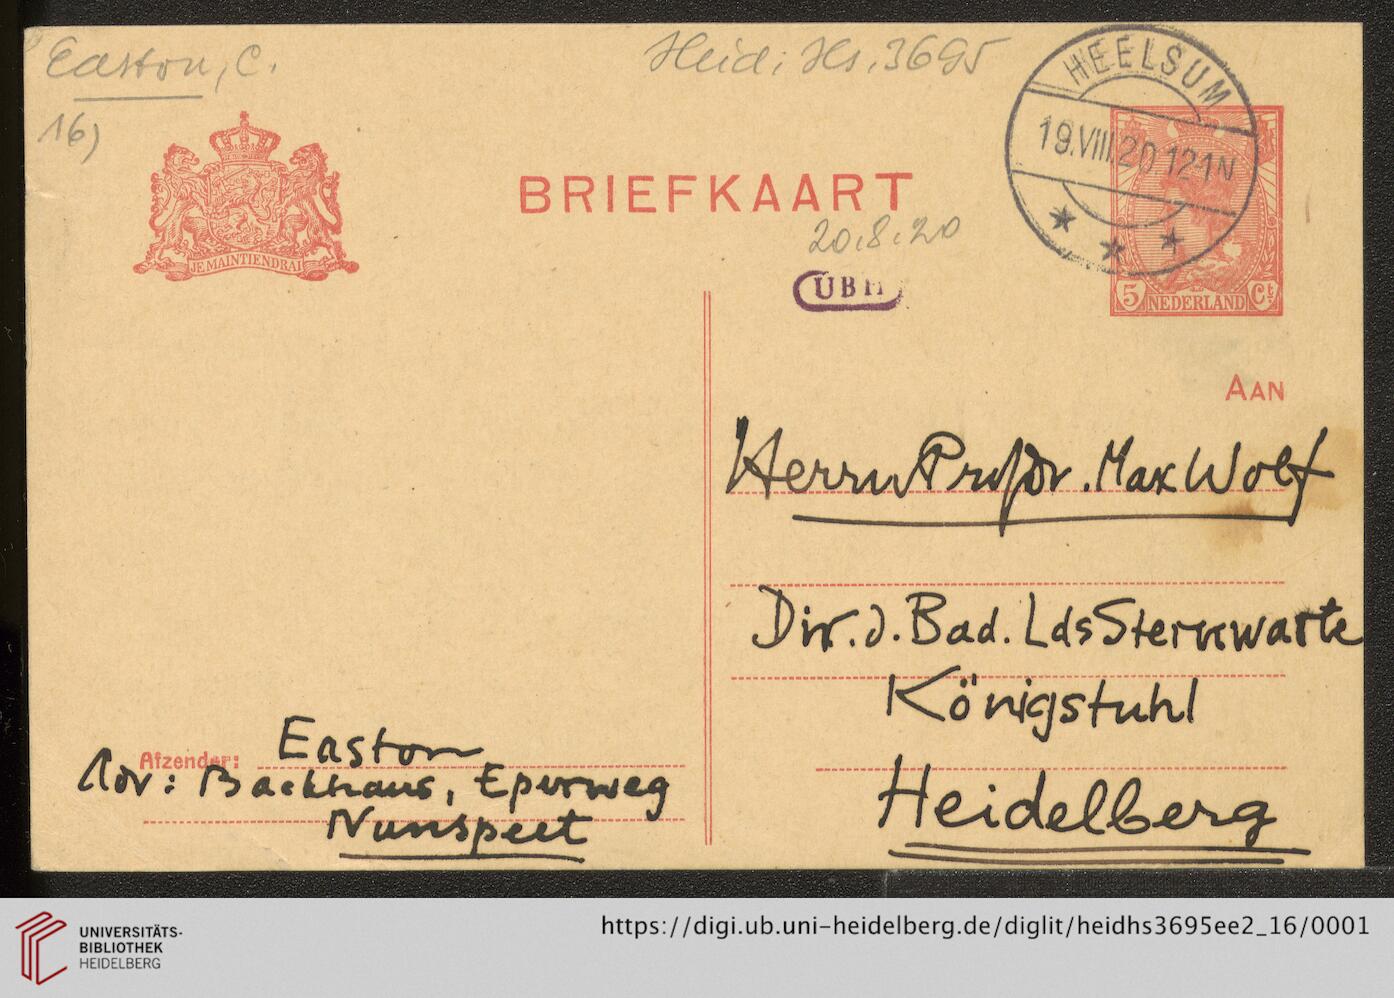 Easton, C.
Heid. Hs. 3695
16)
HEELSUM
19.VIII.20.121N
JE MAINTIENDRAI
BRIEFKAART
20.8.20
UBH
5 NEDERLAND Ct
AAN
Herrn Prof Dr. Max Wolf
Dir. d. Bad. Lds Sternwarte
Königstuhl
Heidelberg
Afzender: Easton
Adr: Backhaus, Eperweg
Nunspeet
UNIVERSITÄTS-
BIBLIOTHEK
HEIDELBERG
https://digi.ub.uni-heidelberg.de/diglit/heidhs3695ee2_16/0001